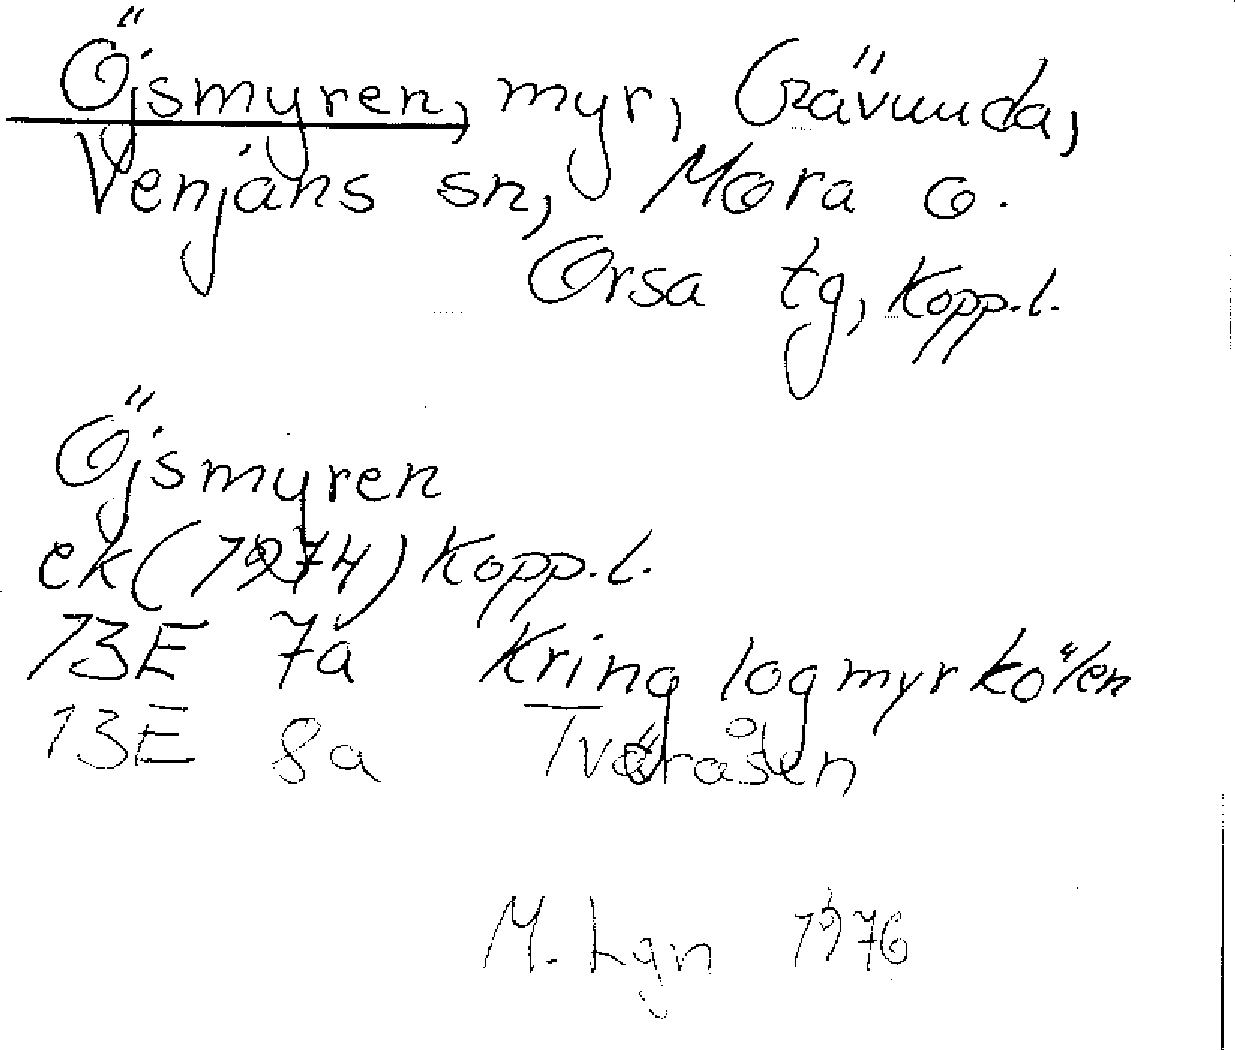 Öjsmyren, myr, Gävunda,
Venjans sn, Mora o.
Orsa tg, Kopp.l.
Öjsmyren
ek (1974) Kopp.l.
13E 7a Kring logmyrkölen
13E 8a Tväråsen
M. Lgn 1976